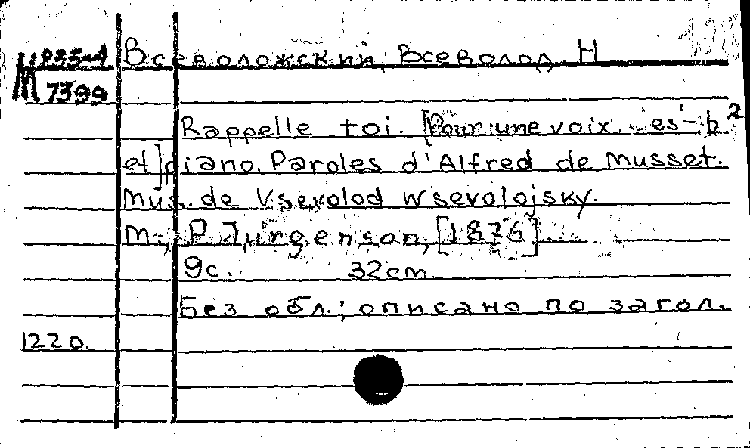 Всеволожский, Всеволод Н
М 7399
Rappelle toi. [Pour une voix. es¹-b²
et] piano. Paroles d'Alfred de Musset.
Mus. de Vsevolod Wsevolojsky.
М., P. Jurgenson, [1876].
9с. 32cm
Без обл.; описано по загол.
1220.